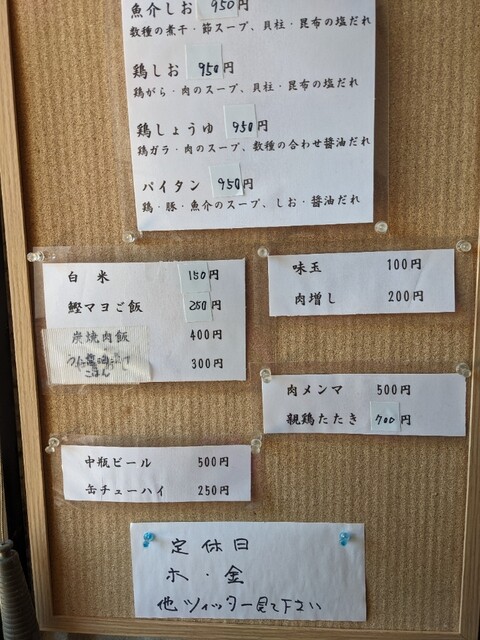 魚介しお 950円
数種の煮干・節スープ、貝柱・昆布の塩だれ
鶏しお 950円
鶏がら・肉のスープ、貝柱・昆布の塩だれ
鶏しょうゆ 950円
鶏ガラ・肉のスープ、数種の合わせ醤油だれ
パイタン 950円
鶏・豚・魚介のスープ、しお・醤油だれ
白米 150円
鰹マヨご飯 250円
炭焼肉飯 400円
ごはん 300円
味玉 100円
肉増し 200円
肉メンマ 500円
親鶏たたき 700円
中瓶ビール 500円
缶チューハイ 250円
定休日
木・金
他ツイッター見て下さい